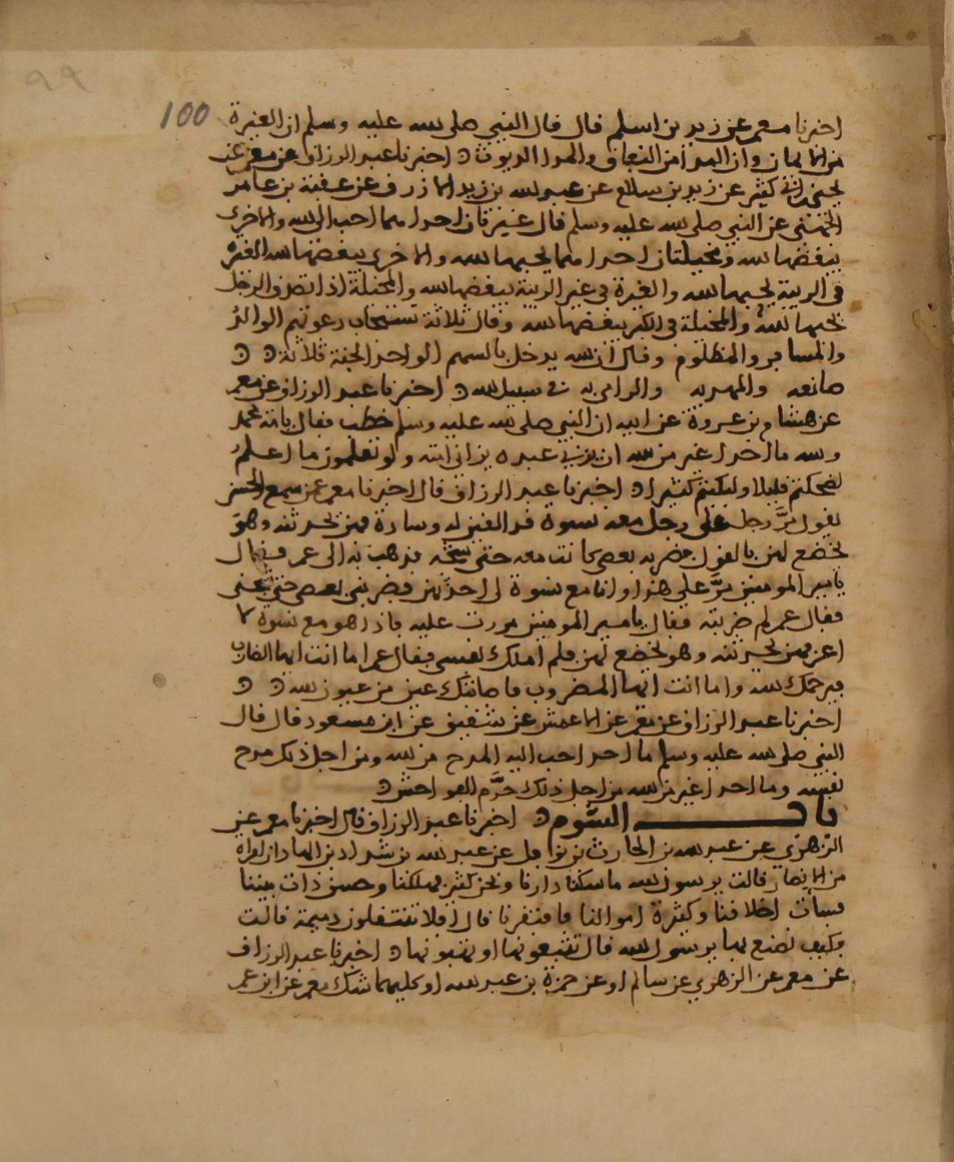 99
100
اخبرنا معمر عن زيد بن اسلم قال قال النبي صلى الله عليه وسلم ان الغيرة
من الايمان وان المذا من النفاق والمذا الديوث اخبرنا عبد الرزاق عن معمر عن
يحيى بن ابي كثير عن زيد بن سلام عن عبد الله بن زيد الازرق عن عقبة بن عامر
الجهني عن النبي صلى الله عليه وسلم قال غيرتان احداهما احب الى الله والاخرى
يبغضها الله ومخيلتان احداهما يحبها الله والاخرى يبغضها الله الغيرة
في الريبة يحبها الله والغيرة في غير الريبة يبغضها الله والمخيلة اذا تصدق الرجل
يحبها الله والمخيلة في الكبر يبغضها الله وقال ثلاثة تستجاب دعوتهم الوالد
والمسافر والمظلوم وقال ان الله يدخل بالسهم الواحد الجنة ثلاثة
صانعه والممد به والرامي به في سبيل الله اخبرنا عبد الرزاق عن معمر
عن هشام بن عروة عن ابيه ان النبي صلى الله عليه وسلم خطب فقال يا امة محمد
والله ما احد اغير من الله ان يزني عبده يزاني امته ولو تعلمون ما اعلم
لضحكتم قليلا ولبكيتم كثيرا اخبرنا عبد الرزاق قال اخبرنا معمر عن من سمع الحسن
يقول مرَّ رجل على رجل معه نسوة قد القين له وسادة فهن يحدثنه وهو
يخضع لهن بالقول فضربه بعصى كانت معه حتى شجه فذهب به الى عمر فقال
يامير المومنين مرَّ علي هذا وانا مع نسوة لي احدثهن فضربني بعصى حتى شجني
فقال عمر لم ضربته فقال يامير المومنين مررت عليه فاذا هو مع نسوة لا
اعرفهن يحدثنه وهو يخضع لهن فلم املك نفسي فقال عمر اما انت ايها الضارب
فيرحمك الله واما انت ايها المضروب فاصابتك عين من عيون الله
اخبرنا عبد الرزاق عن معمر عن الاعمش عن شقيق عن ابن مسعود قال قال
النبي صلى الله عليه وسلم ما احد احب اليه المدح من الله ومن اجل ذلك مدح
نفسه وما احد اغير من الله من اجل ذلك حرَّم الفواحش
باب الشوم اخبرنا عبد الرزاق قال اخبرنا معمر عن
الزهري عن عبد الله بن الحارث بن نوفل عن عبد الله بن شداد بن الهاد ان امراة
من الانصار قالت يرسول الله ما سكنا دارنا ونحن كثير فهلكنا وحسن ذات بيننا
فسات اخلاقنا وكثيرة اموالنا فافتقرنا قال افلا تنتقلون ذميمة قالت
فكيف نصنع بها يرسول الله قال تبيعونها او تهبونها اخبرنا عبد الرزاق
عن معمر عن الزهري عن سالم او عن حمزة بن عبد الله او كليهما شك معمر عن ابن عمر